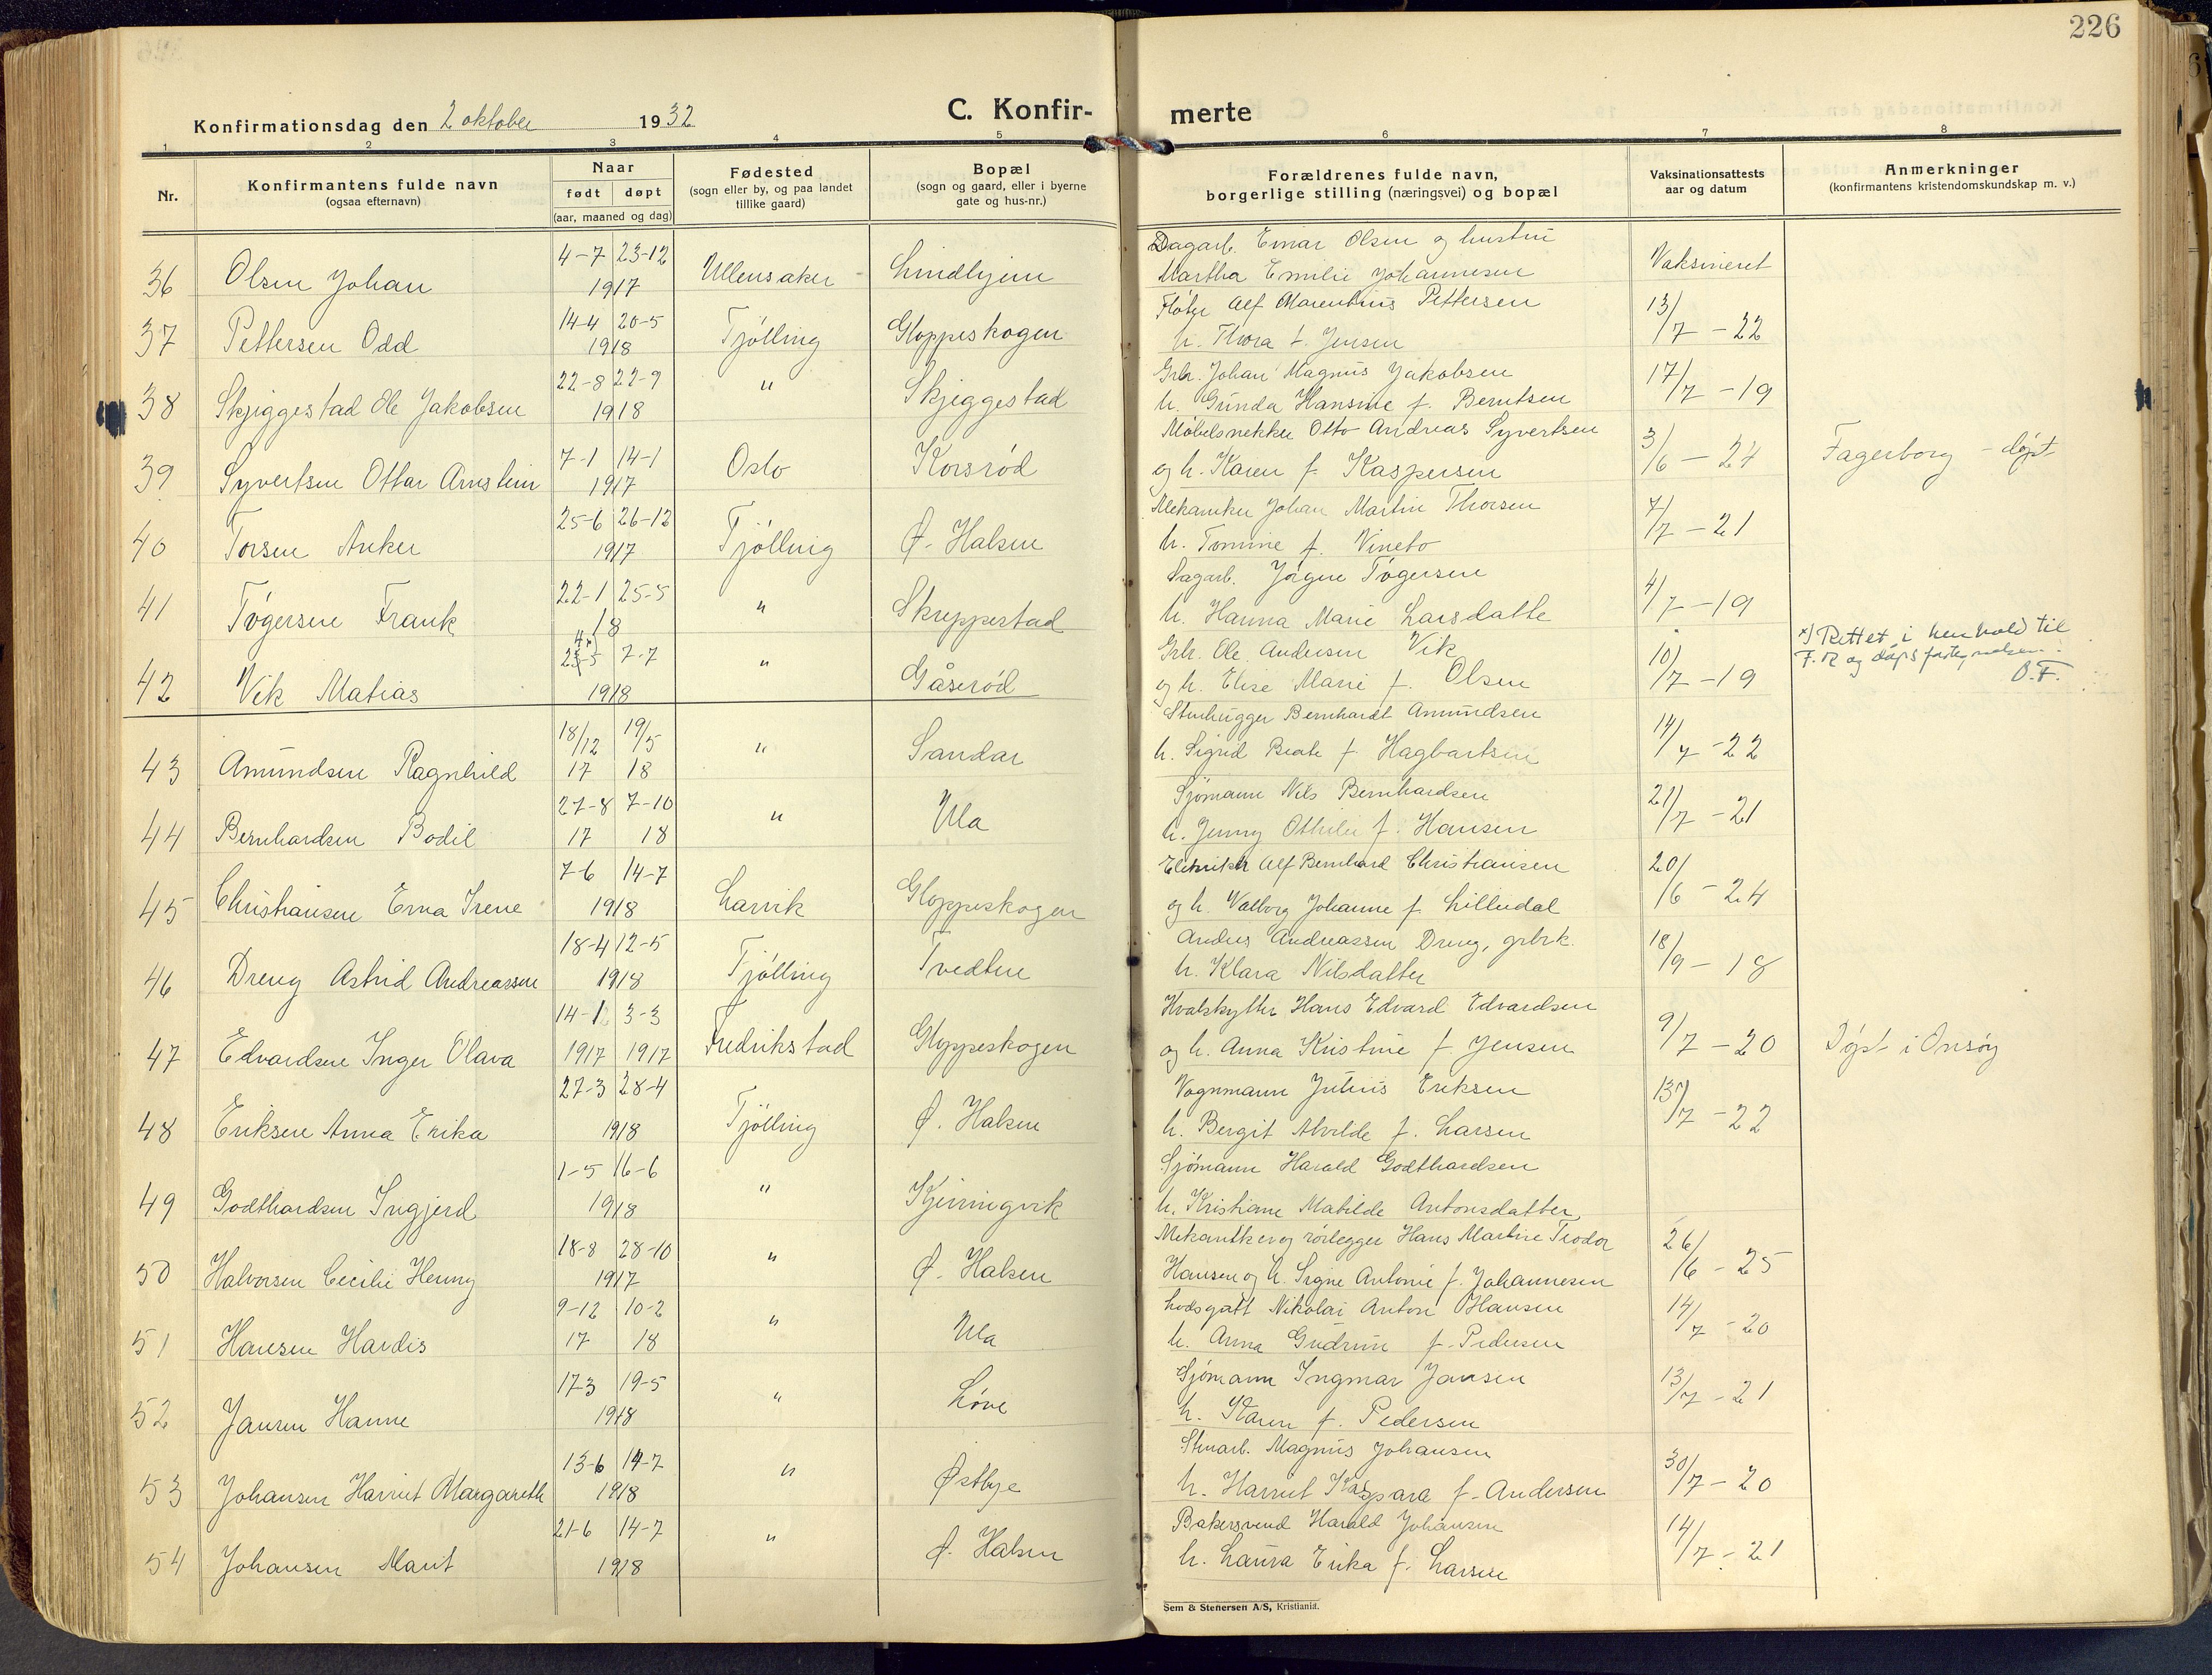 226
Konfirmationsdag den 2 oktober 1932
C. Konfir-
merte
1 2 3 4 5 6 7 8
Nr.
Konfirmantens fulde navn
(ogsaa efternavn)
Naar
født døpt
(aar, maaned og dag)
Fødested
(sogn eller by, og paa landet
tillike gaard)
Bopæl
(sogn og gaard, eller i byerne
gate og hus-nr.)
Forældrenes fulde navn,
borgerlige stilling (næringsvei) og bopæl
Vaksinationsattests
aar og datum
Anmerkninger
(konfirmantens kristendomskundskap m. v.)
4-7 23-12 Dagarb. Einar Olsen og hustru
36 Olsen Johan 1917 Ullensaker Lindhjem Martha Emilie Johannesen Vaksineret
14-4 20-5 Fløter Alf Marentius Pettersen
37 Pettersen Odd 1918 Tjölling Gloppeskogen h. Thora f. Jensen 13/7 - 22
22-8 22-9 Grbr. Johan Magnus Jakobsen
38 Skjeggestad Ole Jakobsen 1918 " Skjeggestad h. Gunda Hansine f. Berntsen 17/7 - 19
7-1 14-1 Møbelsnekker Otto Andreas Syvertsen
39 Syvertsen Ottar Arnstein 1917 Oslo Korsrød og h. Karen f. Kaspersen 3/6 - 24 Fagerborg - døpt
25-6 26-12 Mekaniker Johan Martin Thorsen
40 Torsen Anker 1917 Tjölling Ø. Halsen h. Tomine f. Vineto 7/7 - 21
22-1 25-5 Sagarb. Jörgne Tögersen
41 Tögersen Frank 18 " Skreppestad h. Hanna Marie Larsdatte 4/7 - 19
4 x) 7-7 Grbr. Ole Andersen Vik
42 Vik Matias 1918 " Gåserød og h. Elise Marie f. Olsen 10/7 - 19
x) Rettet i henhold til
F.R og dåpsforteg nelsen.
O.F.
18/12 19/5 Stenhugger Bernhardt Amundsen
43 Amundsen Ragnhild 17 18 " Sandar h. Sigrid Beate f. Hagbartsen 14/7 - 22
27-8 7-10 Sjömann Nils Bernhardsen
44 Bernhardsen Bodil 17 18 " Ula h. Jenny Othilie f. Hansen 21/7 - 21
7-6 14-7 Elektriker Alf Bernhard Christiansen
45 Christiansen Erna Irene 1918 Larvik Gloppeskogen og h. Valborg Johanne f. Lilledal 20/6 - 24
18-4 12-5 Anders Andreassen Dreng, grbrk.
46 Dreng Astrid Andreassen 1918 Tjölling Tvedten h. Klara Nilsdatter 18/9 - 18
14-1 3-3 Hvalskytter Hans Edvard Edvardsen
47 Edvardsen Inger Olava 1917 1917 Fredrikstad Gloppeskogen og h. Anna Kristine f. Jensen 9/7 - 20 Döpt i Onsöy
27-3 28-4 Vognmann Julius Eriksen
48 Eriksen Anna Erika 1918 Tjölling Ø. Halsen h. Bergit Alvilde f. Larsen 13/7 - 22
1-5 16-6 Sjömann Harald Godthardsen
49 Godthardsen Ingjerd 1918 " Kjerringvik h. Kristiane Matilde Antonsdatter
18-8 28-10 Mekaniker og rörlegger Hans Martin Teodor
50 Halvorsen Cecilie Henny 1917 " Ø. Halsen Hansen og h. Signe Antonie f. Johannesen 26/6 - 25
9-12 10-2 Losgutt Nikolai Anton Hansen
51 Hansen Hardis 17 18 " Ula h. Anna Gudrun f. Pedersen 14/7 - 20
17-3 19-5 Sjömann Ingmar Jansen
52 Jansen Hanne 1918 " Løve h. Karen f. Pedersen 13/7 - 21
13-6 14-7 Stenarb. Magnus Johansen
53 Johansen Harriet Margareth 1918 " Østbye h. Harriet Kaspara f. Andersen 30/7 - 20
21-6 14-7 Bakersvend Harald Johansen
54 Johansen Maut 1918 " Ø. Halsen h. Laura Erika f. Larsen 14/7 - 21
Sem & Stenersen A/S, Kristiania.